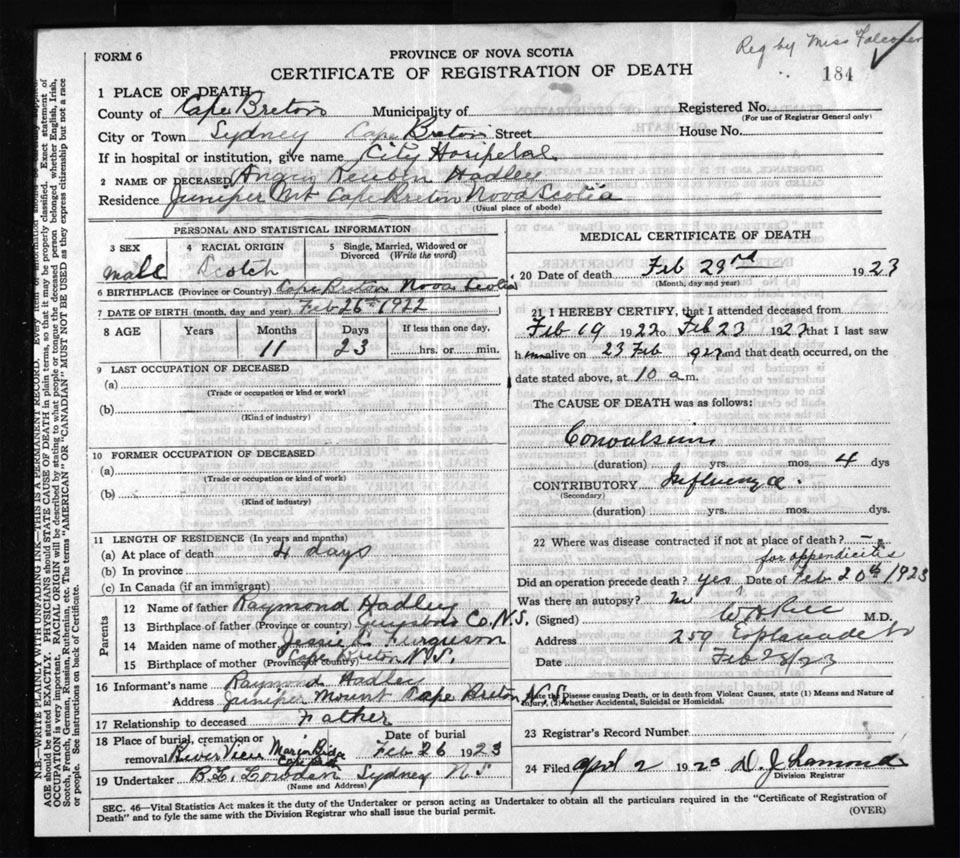 Reg by Miss Falconer
184
FORM 6
PROVINCE OF NOVA SCOTIA
CERTIFICATE OF REGISTRATION OF DEATH
1 PLACE OF DEATH
County of Cape Breton Municipality of
Registered No.
(For use of Registrar General only)
City or Town Sydney Cape Breton Street
House No.
If in hospital or institution, give name City Hosipetal
2 NAME OF DECEASED Reuben Hadley
Residence Juniper Mt Cape Breton Nova Scotia
(Usual place of abode)
PERSONAL AND STATISTICAL INFORMATION
3 SEX
4 RACIAL ORIGIN
5 Single, Married, Widowed or Divorced (Write the word)
male Scotch
6 BIRTHPLACE (Province or Country) Cape Breton Nova Scotia
7 DATE OF BIRTH (month, day and year) Feb 26th 1922
8 AGE Years Months Days If less than one day,
11 23 hrs. or min.
9 LAST OCCUPATION OF DECEASED
(a)
(Trade or occupation or kind or work)
(b)
(Kind of industry)
10 FORMER OCCUPATION OF DECEASED
(a)
(Trade or occupation or kind of work)
(b)
(Kind of industry)
11 LENGTH OF RESIDENCE (In years and months)
(a) At place of death 4 days
(b) In province
(c) In Canada (if an immigrant)
Parents
12 Name of father Raymond Hadley
13 Birthplace of father (Province or country) Guysboro Co. N.S.
14 Maiden name of mother Jessie Ferguson
15 Birthplace of mother (Province or country) Cape Breton N.S.
16 Informant's name Raymond Hadley
Address Juniper Mount Cape Breton N.S.
17 Relationship to deceased Father
18 Place of burial, cremation or removal River View Date of burial Feb 26 1923
19 Undertaker Sydney N S
(Name and Address)
MEDICAL CERTIFICATE OF DEATH
20 Date of death Feb 23rd 1923
(Month, day and year)
21 I HEREBY CERTIFY, that I attended deceased from
Feb 19 1922 to Feb 23 1923 that I last saw
h alive on 23 Feb 192 and that death occurred, on the
date stated above, at 10 a m.
The CAUSE OF DEATH was as follows:
Convulsions
(duration) yrs. mos. 4 dys
CONTRIBUTORY Influenza.
(Secondary)
(duration) yrs. mos. dys.
22 Where was disease contracted if not at place of death?
for appendicitis
Did an operation precede death? yes Date of Feb 20th 1923
Was there an autopsy? no
(Signed) M.D.
Address 259 Esplanade
Date Feb 23/23
State the Disease causing Death, or in death from Violent Causes, state (1) Means and Nature of
Injury, (2) whether Accidental, Suicidal or Homicidal.
23 Registrar's Record Number
24 Filed April 2 1923 D. J.
Division Registrar
SEC. 46—Vital Statistics Act makes it the duty of the Undertaker or person acting as Undertaker to obtain all the particulars required in the "Certificate of Registration of
Death" and to fyle the same with the Division Registrar who shall issue the burial permit.
(OVER)
N.B.—WRITE PLAINLY WITH UNFADING INK—THIS IS A PERMANENT RECORD. Every item of information should be
AGE should be stated EXACTLY. PHYSICIANS should STATE CAUSE OF DEATH in plain terms, so that it may be properly classified. Exact statement of
OCCUPATION is very important. RACIAL ORIGIN will be described by stating to what people or tongue the deceased person belonged whether English, Irish,
Scotch, French, German, Russian, Ruthenian, etc. The terms "AMERICAN" OR "CANADIAN" MUST NOT BE USED as they express citizenship but not a race
or people. See instructions on back of Certificate.